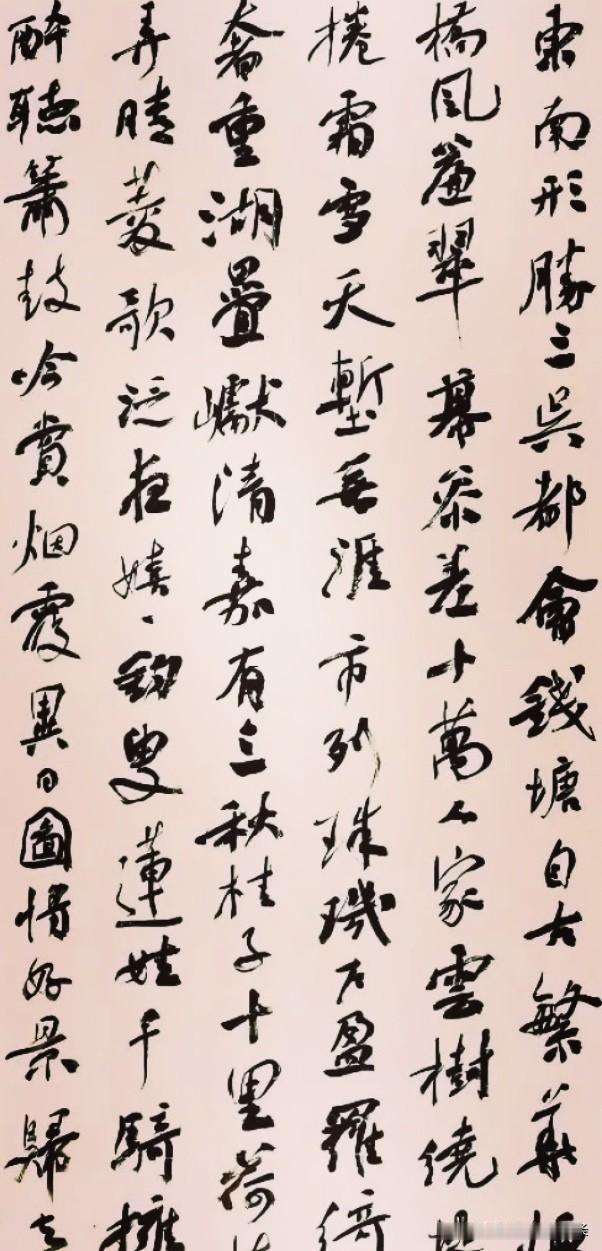 東南形勝三吳都會錢塘自古繁華
橋風簾翠幕參差十萬人家雲樹繞
捲霜雪天塹無涯市列珠璣户盈羅綺
奢重湖疊巘清嘉有三秋桂子十里荷
弄晴菱歌泛夜嬉、釣叟蓮娃千騎擁
醉聽簫鼓吟賞烟霞異日圖將好景歸去